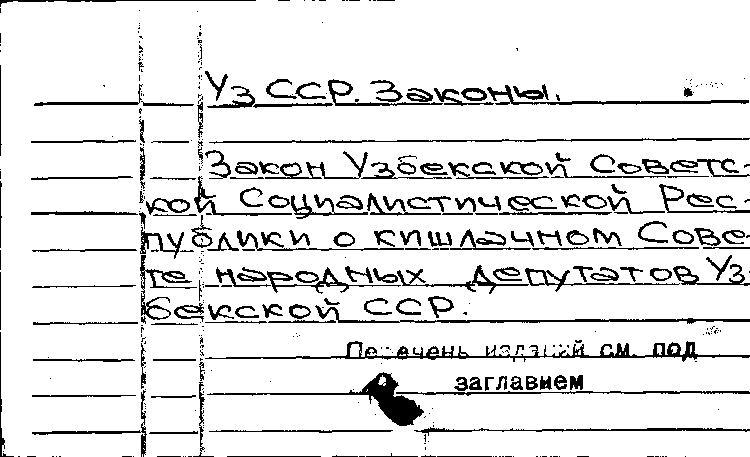 Уз ССР. Законы.
Закон Узбекской Советс-
кой Социалистической Рес-
публики о кишлачном Сове-
те народных депутатов Уз-
бекской ССР.
Перечень изданий см. под
заглавием